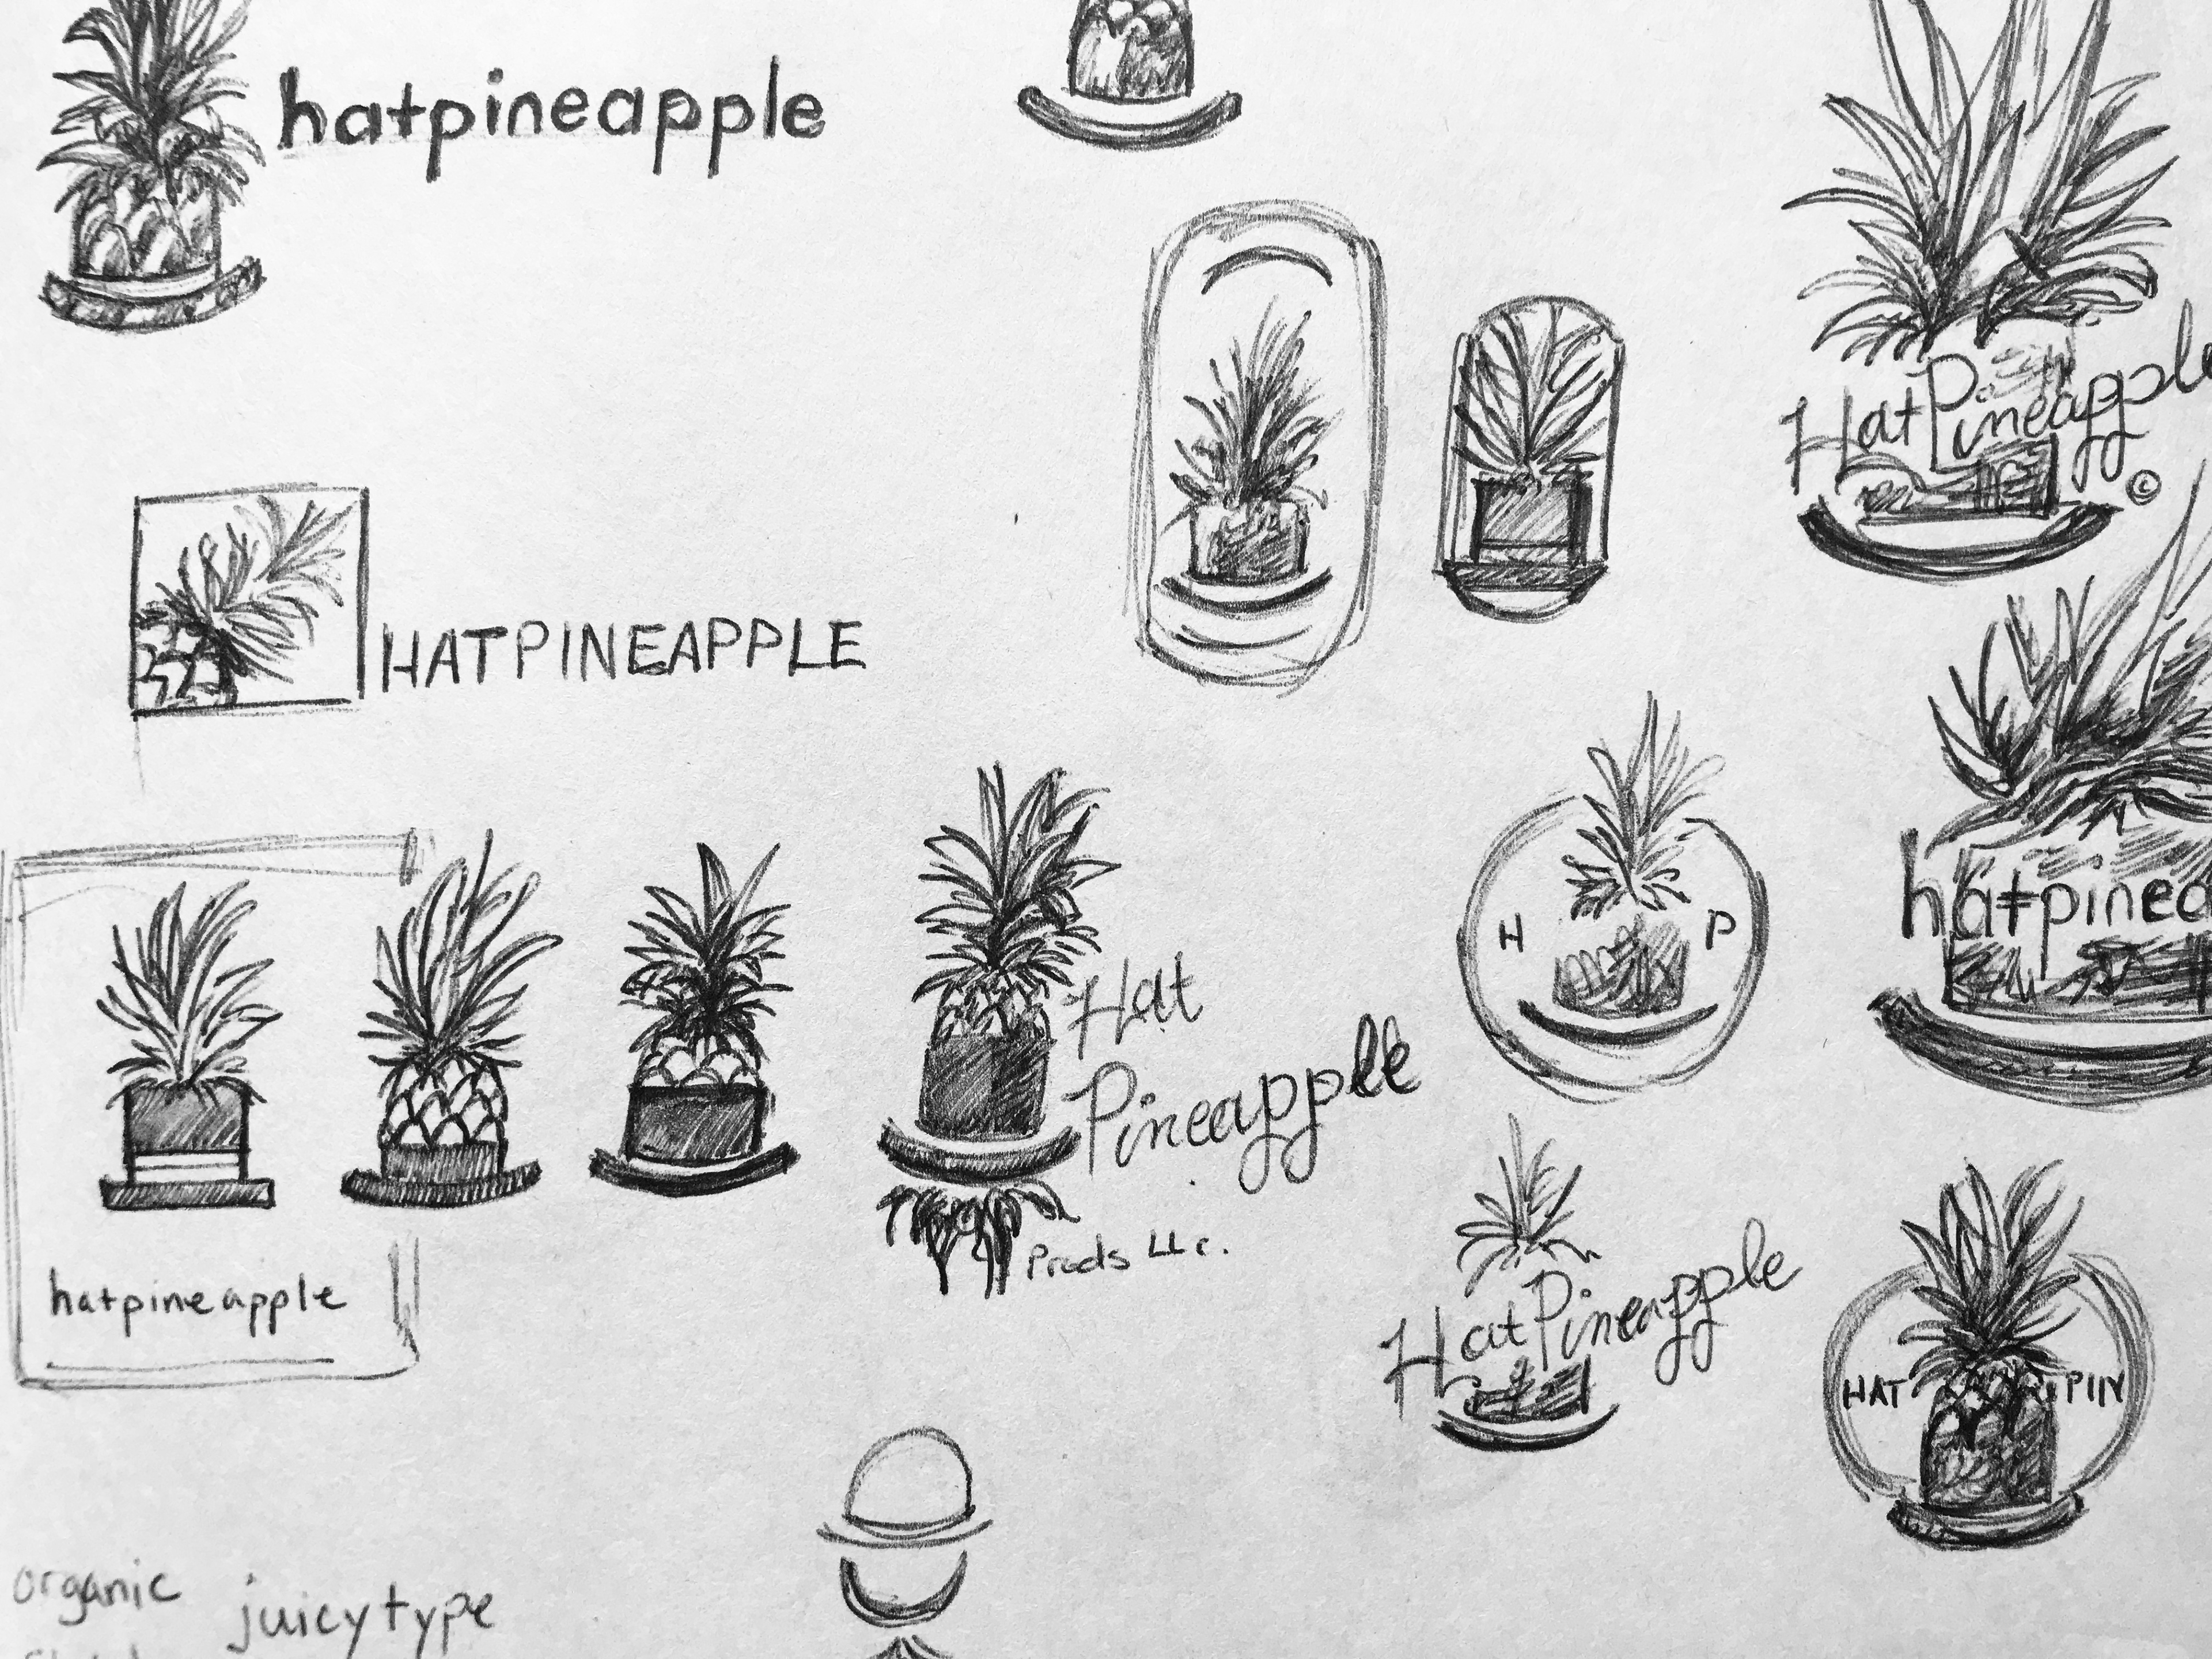 hatpineapple
HatPineapple
©
HATPINEAPPLE
H P
hatpinea
Hat
Pineapple
Prods LLc.
hatpineapple
HatPineapple
HAT PIN
organic juicy type